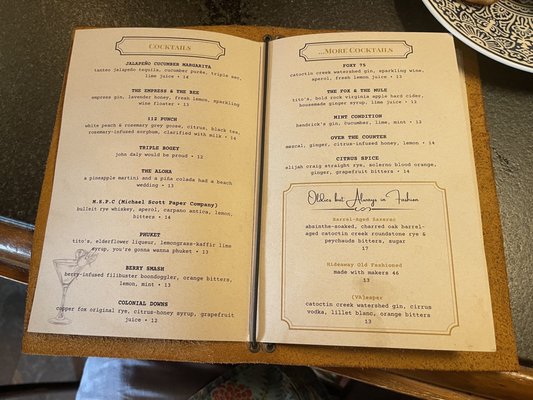 COCKTAILS
JALAPEÑO CUCUMBER MARGARITA
tanteo jalapeño tequila, cucumber purée, triple sec,
lime juice • 14
THE EMPRESS & THE BEE
empress gin, lavender honey, fresh lemon, sparkling
wine floater • 13
112 PUNCH
white peach & rosemary grey goose, citrus, black tea,
rosemary-infused sorghum, clarified with milk • 14
TRIPLE BOGEY
john daly would be proud • 12
THE ALOHA
a pineapple martini and a piña colada had a beach
wedding • 13
M.S.P.C (Michael Scott Paper Company)
bulleit rye whiskey, aperol, carpano antica, lemon,
bitters • 14
PHUKET
tito's, elderflower liqueur, lemongrass-kaffir lime
syrup, you're gonna wanna phuket • 13
BERRY SMASH
berry-infused filibuster boondoggler, orange bitters,
lemon, mint • 13
COLONIAL DOWNS
copper fox original rye, citrus-honey syrup, grapefruit
juice • 12
...MORE COCKTAILS
FOXY 75
catoctin creek watershed gin, sparkling wine,
aperol, fresh lemon juice • 13
THE FOX & THE MULE
tito's, bold rock virginia apple hard cider,
housemade ginger syrup, lime juice • 12
MINT CONDITION
hendrick's gin, cucumber, lime, mint • 12
OVER THE COUNTER
mezcal, ginger, citrus-infused honey, lemon • 14
CITRUS SPICE
elijah craig straight rye, solerno blood orange,
ginger, grapefruit bitters • 14
Oldies but Always in Fashion
Barrel-Aged Sazerac
absinthe-soaked, charred oak barrel-
aged catoctin creek roundstone rye &
peychauds bitters, sugar
17
Hideaway Old Fashioned
made with makers 46
13
[VA]esper
catoctin creek watershed gin, cirrus
vodka, lillet blanc, orange bitters
13